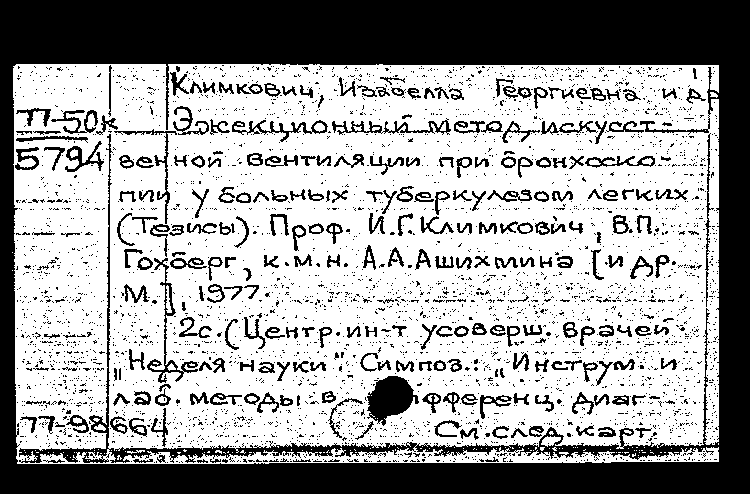 Климкович, Изабелла Георгиевна и др
П-50к
5794
Эжекционный метод искусст-
венной вентиляции при бронхоско-
пии у больных туберкулезом легких.
(Тезисы). Проф. И.Г. Климкович, В.П.
Гохберг, к.м.н. А.А. Ашихмина [и др.
М.], 1977.
2с. (Центр. ин-т усоверш. врачей.
„Неделя науки". Симпоз.: „Инструм. и
лаб. методы в фференц. диаг-
77-98664
См. след. карт.